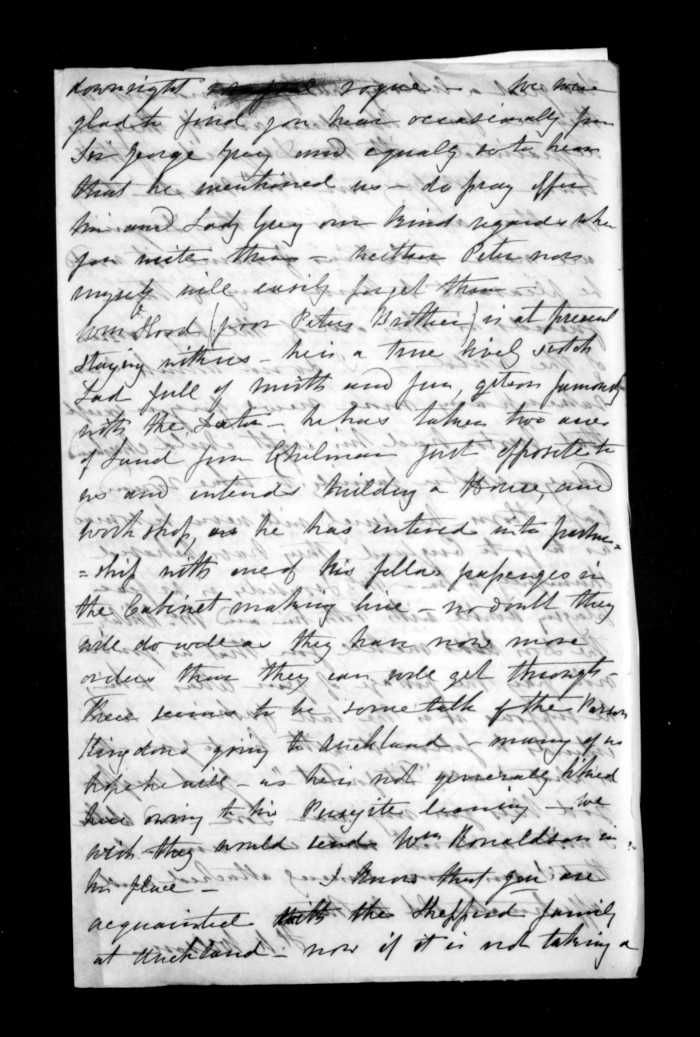 downright rogue - We were
glad to find you hear occasionally from
Sir George Grey and equally so to hear
that he mentioned us - do pray offer
him and Lady Grey our kind regards when
you write them - neither Peter nor
myself will easily forget them -
Wm Hood (poor Peters Brother) is at present
staying with us - he is a true lively Scotch
Lad full of mirth and fun, gets on famously
with the - he has taken two acres
of Land from Chilman just opposite to
us and intends building a House, and
workshop, as he has entered into partner-
=ship with one of his fellow passengers in
the Cabinet making line - no doubt they
will do well as they have now more
orders than they can well get through
There seems to be some talk of the Parson
Kingdon going to Auckland - many of us
hope he will - as he is not generally liked
here owing to his Pusyite leaning - we
wish they would send Wm Ronaldson in
his place - I know that you are
acquainted with the Shepperd family
at Auckland - now if it is not taking a